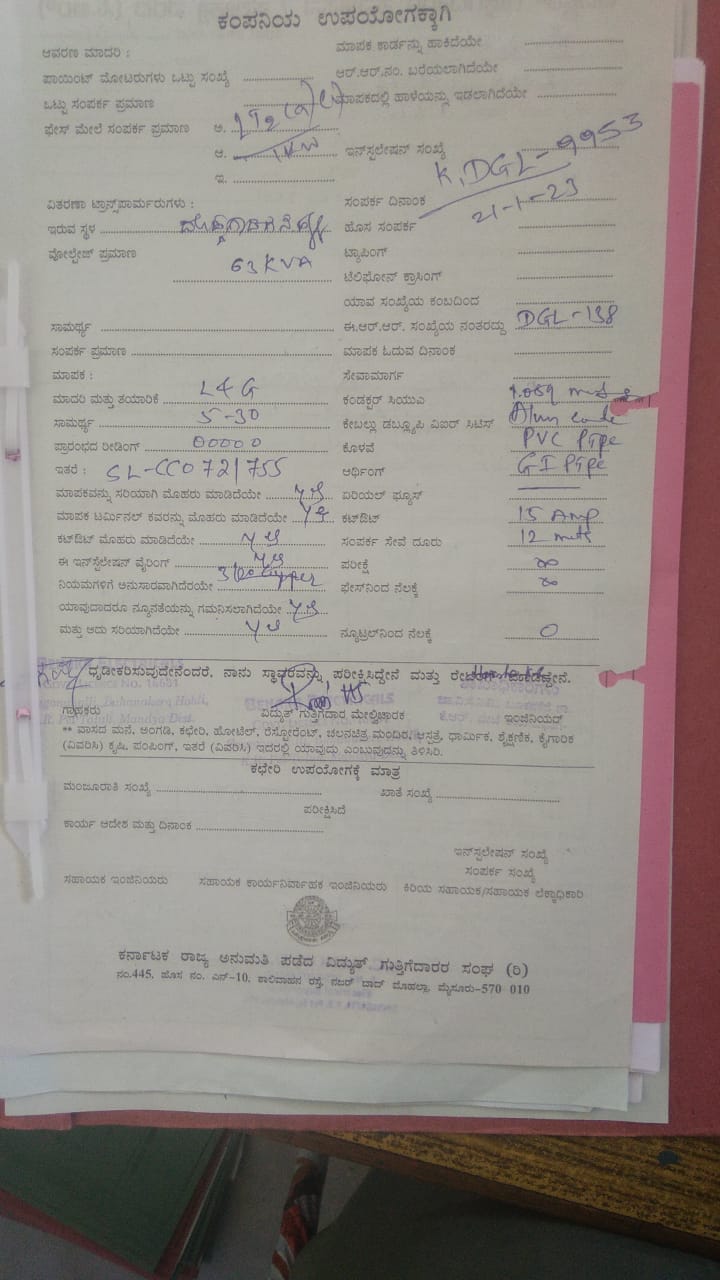 ಕಂಪನಿಯ ಉಪಯೋಗಕ್ಕಾಗಿ
ಆವರಣ ಮಾದರಿ :
ಮಾಪಕ ಕಾರ್ಡನ್ನು ಹಾಕಿದೆಯೇ
ಪಾಯಿಂಟ್ ಮೋಟರುಗಳು ಒಟ್ಟು ಸಂಖ್ಯೆ
ಆರ್.ಆರ್.ನಂ. ಬರೆಯಲಾಗಿದೆಯೇ
ಒಟ್ಟು ಸಂಪರ್ಕ ಪ್ರಮಾಣ
ಮಾಪಕದಲ್ಲಿ ಹಾಳೆಯನ್ನು ಇಡಲಾಗಿದೆಯೇ
ಫೇಸ್ ಮೇಲೆ ಸಂಪರ್ಕ ಪ್ರಮಾಣ ಅ. LT2(a)
ಆ. 1KW ಇನ್‌ಸ್ಟಲೇಷನ್ ಸಂಖ್ಯೆ K.DGL-9953
ಇ.
ವಿತರಣಾ ಟ್ರಾನ್ಸ್‌ಫಾರ್ಮರುಗಳು :
ಸಂಪರ್ಕ ದಿನಾಂಕ 21-1-23
ಇರುವ ಸ್ಥಳ
ಹೊಸ ಸಂಪರ್ಕ
ವೋಲ್ಟೇಜ್ ಪ್ರಮಾಣ 63 KVA
ಟ್ಯಾಪಿಂಗ್
ಟೆಲಿಫೋನ್ ಕ್ರಾಸಿಂಗ್
ಯಾವ ಸಂಖ್ಯೆಯ ಕಂಬದಿಂದ
ಸಾಮರ್ಥ್ಯ
ಈ.ಆರ್.ಆರ್. ಸಂಖ್ಯೆಯ ನಂತರದ್ದು DGL-138
ಸಂಪರ್ಕ ಪ್ರಮಾಣ
ಮಾಪಕ ಓದುವ ದಿನಾಂಕ
ಮಾಪಕ :
ಸೇವಾಮಾರ್ಗ
ಮಾದರಿ ಮತ್ತು ತಯಾರಿಕೆ L&G
ಕಂಡಕ್ಟರ್ ಸಿಯುಎ
ಸಾಮರ್ಥ್ಯ 5-30
ಕೇಬಲ್ಲು ಡಬ್ಲ್ಯೂಪಿ ವಿಐರ್ ಸಿಟಿಸ್
ಪ್ರಾರಂಭದ ರೀಡಿಂಗ್ 00000
ಕೊಳವೆ PVC PIPe
ಇತರೆ : SL-CC072/755
ಆರ್ಥಿಂಗ್ GI PIPe
ಮಾಪಕವನ್ನು ಸರಿಯಾಗಿ ಮೊಹರು ಮಾಡಿದೆಯೇ
ಏರಿಯಲ್ ಫ್ಯೂಸ್
ಮಾಪಕ ಟರ್ಮಿನಲ್ ಕವರನ್ನು ಮೊಹರು ಮಾಡಿದೆಯೇ
ಕಟ್‌ಔಟ್ 15 Amp
ಕಟ್‌ಔಟ್ ಮೊಹರು ಮಾಡಿದೆಯೇ
ಸಂಪರ್ಕ ಸೇವೆ ದೂರು 12 mts
ಈ ಇನ್‌ಸ್ಟಲೇಷನ್ ವೈರಿಂಗ್
ಪರೀಕ್ಷೆ ∞
ನಿಯಮಗಳಿಗೆ ಅನುಸಾರವಾಗಿದೆರಯೇ
ಫೇಸ್‌ನಿಂದ ನೆಲಕ್ಕೆ ∞
ಯಾವುದಾದರೂ ನ್ಯೂನತೆಯನ್ನು ಗಮನಿಸಲಾಗಿದೆಯೇ
ಮತ್ತು ಅದು ಸರಿಯಾಗಿದೆಯೇ
ನ್ಯೂಟ್ರಲ್‌ನಿಂದ ನೆಲಕ್ಕೆ 0
ಧೃಡೀಕರಿಸುವುದೇನೆಂದರೆ, ನಾನು ಸ್ಥಾವರವನ್ನು ಪರೀಕ್ಷಿಸಿದ್ದೇನೆ ಮತ್ತು
ಗ್ರಾಹಕರು ವಿದ್ಯುತ್ ಗುತ್ತಿಗೆದಾರ ಮೇಲ್ವಿಚಾರಕ ಇಂಜಿನಿಯರ್
** ವಾಸದ ಮನೆ, ಅಂಗಡಿ, ಕಛೇರಿ, ಹೋಟೆಲ್, ರೆಸ್ಟೋರೆಂಟ್, ಚಲನಚಿತ್ರ ಮಂದಿರ, ಆಸ್ಪತ್ರೆ, ಧಾರ್ಮಿಕ, ಶೈಕ್ಷಣಿಕ, ಕೈಗಾರಿಕ
(ವಿವರಿಸಿ) ಕೃಷಿ, ಪಂಪಿಂಗ್, ಇತರೆ (ವಿವರಿಸಿ) ಇದರಲ್ಲಿ ಯಾವುದು ಎಂಬುವುದನ್ನು ತಿಳಿಸಿರಿ.
ಕಛೇರಿ ಉಪಯೋಗಕ್ಕೆ ಮಾತ್ರ
ಮಂಜೂರಾತಿ ಸಂಖ್ಯೆ ಖಾತೆ ಸಂಖ್ಯೆ
ಪರೀಕ್ಷಿಸಿದೆ
ಕಾರ್ಯ ಆದೇಶ ಮತ್ತು ದಿನಾಂಕ
ಇನ್‌ಸ್ಟಲೇಷನ್ ಸಂಖ್ಯೆ
ಸಂಪರ್ಕ ಸಂಖ್ಯೆ
ಸಹಾಯಕ ಇಂಜಿನಿಯರು ಸಹಾಯಕ ಕಾರ್ಯನಿರ್ವಾಹಕ ಇಂಜಿನಿಯರು ಕಿರಿಯ ಸಹಾಯಕ/ಸಹಾಯಕ ಲೆಕ್ಕಾಧಿಕಾರಿ
ಕರ್ನಾಟಕ ರಾಜ್ಯ ಅನುಮತಿ ಪಡೆದ ವಿದ್ಯುತ್ ಗುತ್ತಿಗೆದಾರರ ಸಂಘ (ರಿ)
ನಂ.445, ಹೊಸ ನಂ. ಎನ್-10, ಶಾಲಿವಾಹನ ರಸ್ತೆ, ನಜರ್ ಬಾದ್ ಮೊಹಲ್ಲಾ, ಮೈಸೂರು-570 010